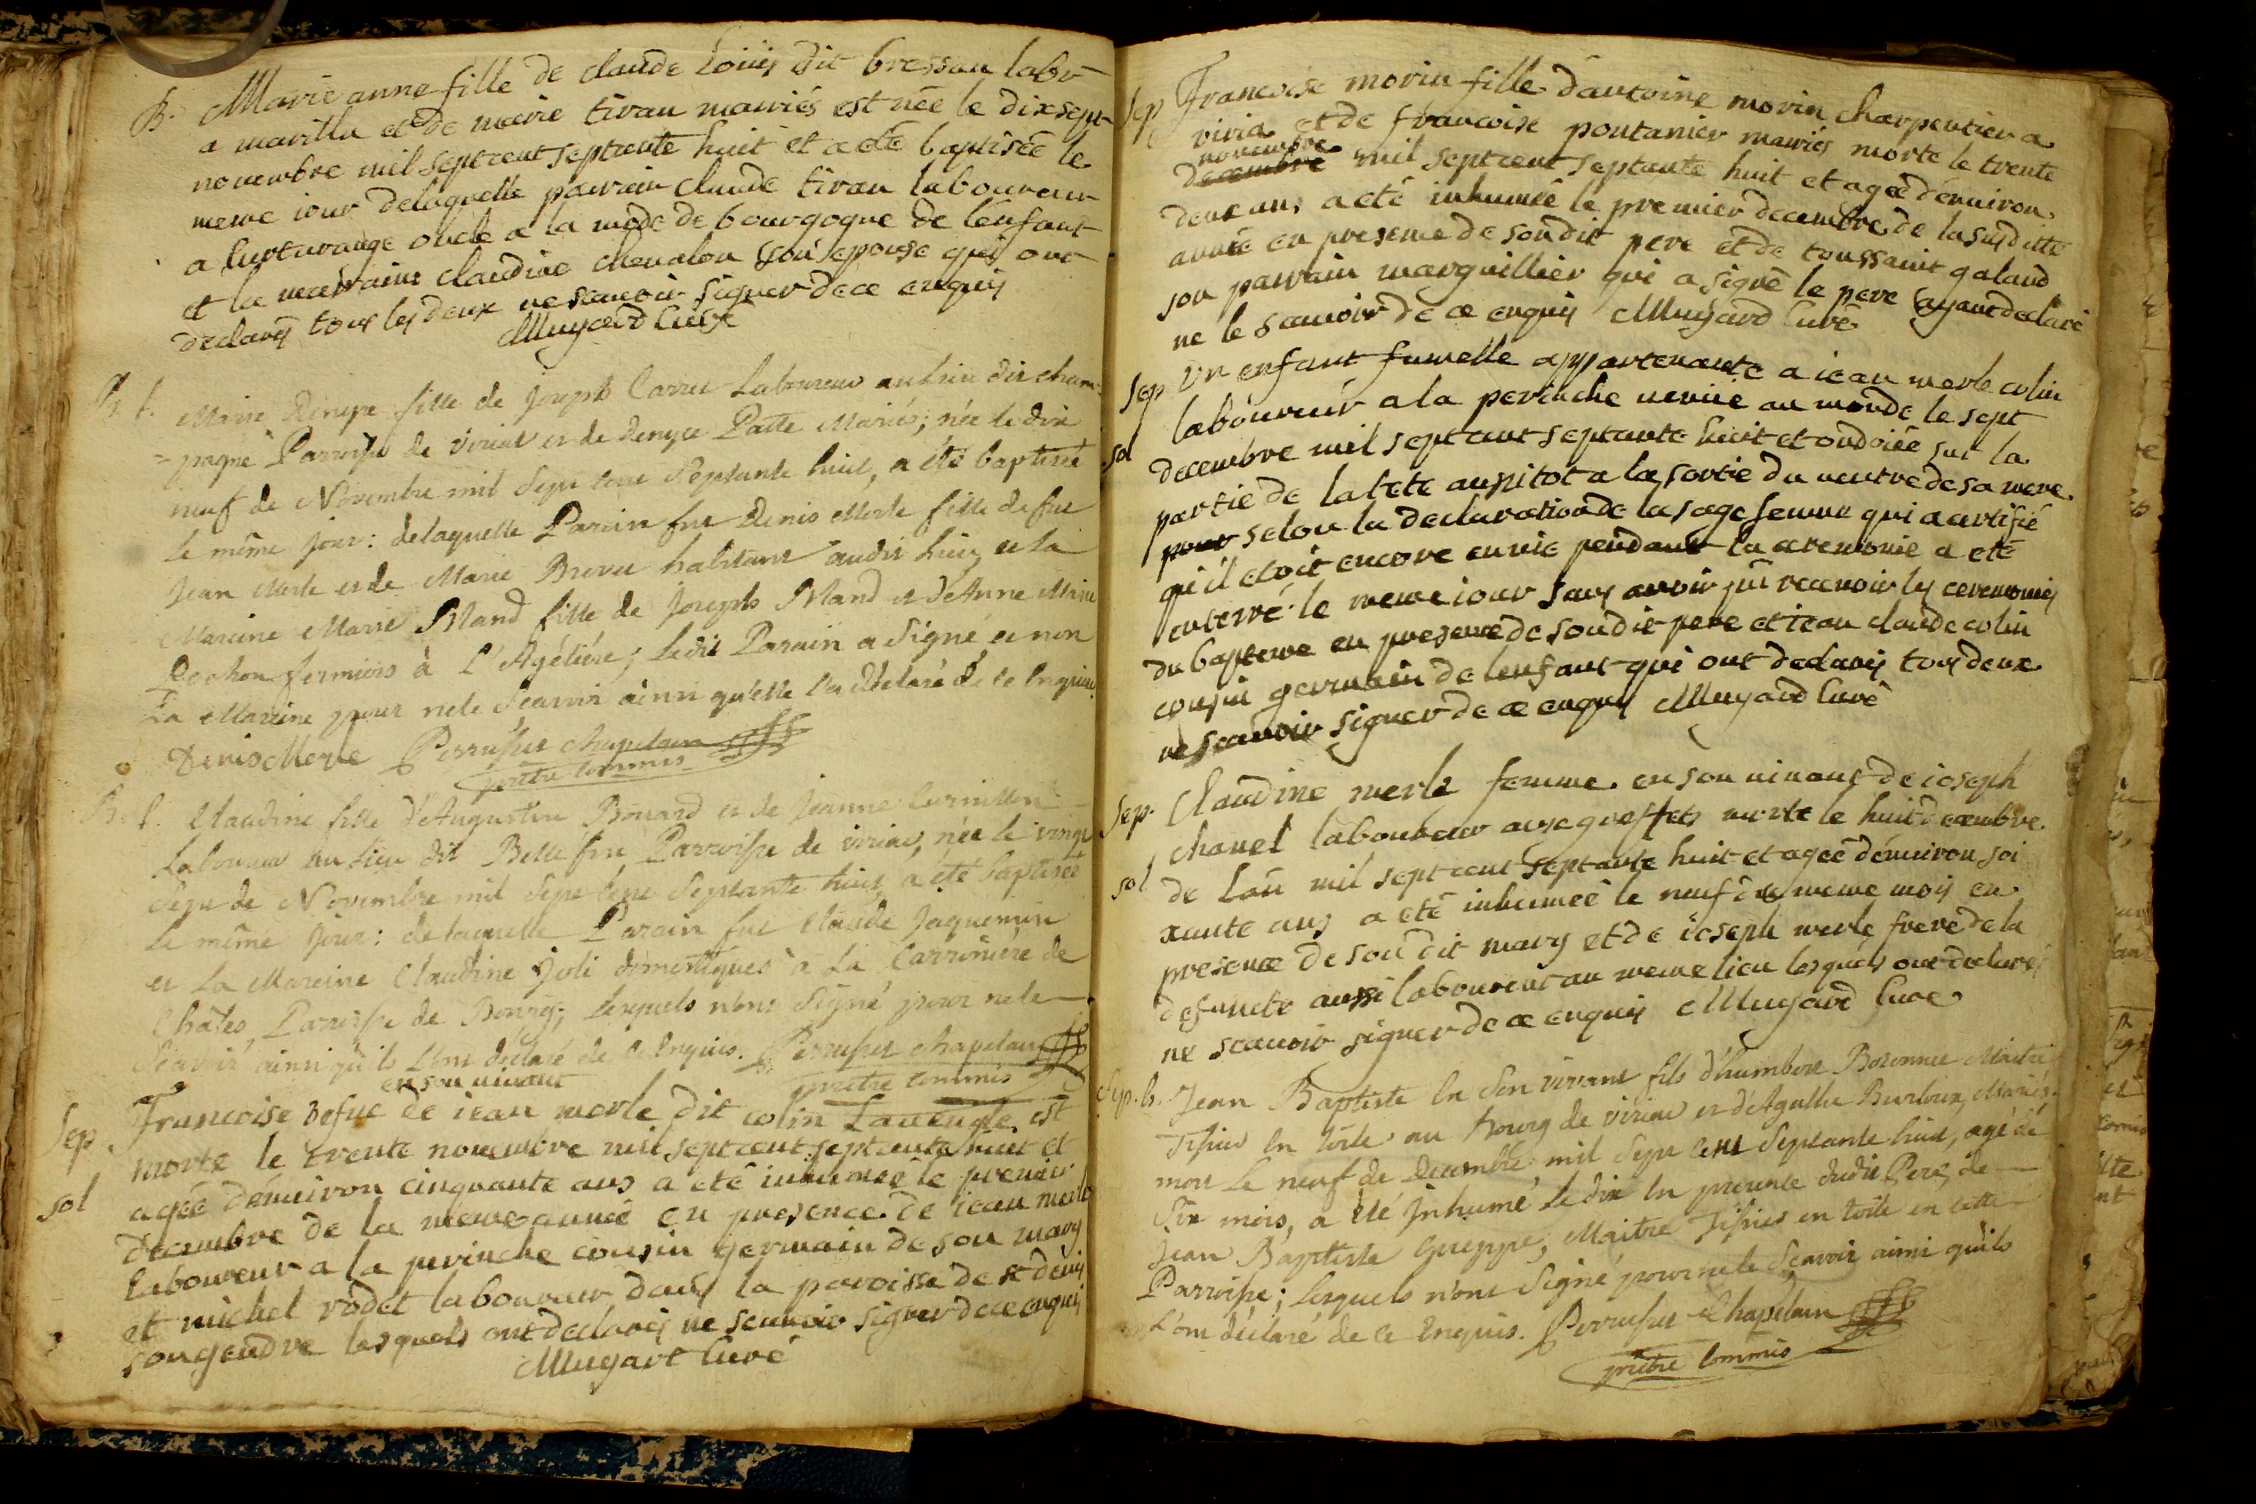 B. Marie anne fille de claude Loüis dit bressan labr
a marilla et de marie tiran mariés est née le dixsept
novembre mil septcent septante huit et a eté baptisée le
meme iour delaquelle parrain claude tiran laboureur
a curtarange oncle a la mode de bourgogne de l'enfant
et la marraine claudine chevalon son epouse qui ont
declarés tous les deux ne scavoir signer de ce enquis
Mugard Curé
B. f. Marie Denyse fille de Joseph Carret Laboureur au lieu dit cham=
=pagne Parroisse de viriat et de Denyse Patte Mariés; née le dix
neuf de Novembre mil Sept cent Septante huit, a été baptisée
le même jour: delaquelle Parain fut Denis Merle fils de fut
Jean Merle et de Marie Brevet habitant audit lieu, et la
Maraine Marie Mand fille de Joseph Mand et d'Anne Marie
Rochon fermiers à L'Agéliére; ledit Parain a Signé, et non
La Maraine pour nele Scavoir ainsi qu'elle l'a déclaré de ce Enquise.
Denis Merle Perruset chapelain
prêtre commis
B. f. Claudine fille d'Augustin Bouard et de Jeanne Curnillon
Laboureur au lieu dit Bellefin Parroisse de viriat, née le vingt
Sept de Novembre mil Sept Cent Septante huit, a été baptisée
le même jour: de laquelle Parain fut Claude Jaquemin
et La Maraine Claudine Joli domestiques à La Carronière de
Châles, Parroisse de Bourg; lesquels n'ont Signé pour nele
Scavoir ainsi qu'ils L'ont déclaré de ce Enquis. Perruset chapelain
prêtre commis
en son vivant
Sep. Francoise vefue de iean merle dit colin Laveugle est
morte le trente novembre mil septcent septante huit et
sol agée d'environ cinquante ans a eté inhumée le premier
decembre de la meme année en presence de iean merle
laboureur a la perinche cousin germain de son mary
et michel rodet laboureur dans la paroisse de st denis
son gendre lesquels ont declarés ne scavoir signer de ce enquis
Mugart Curé
Sep Francoise morin fille d'antoine morin charpentier a
viria et de francoise pontanier mariés morte le trente
novembre
decembre mil septcent septante huit et agée d'environ
deux ans a eté inhumée le premier decembre de la susditte
année en presence de son dit pere et de toussaint galand
son parrain marguillier qui a signé le pere ayant declaré
ne le scavoir de ce enquis Mugard Curé
Sep Un enfant fumelle appartenante a iean merle colin
laboureur a la perinche venüe au monde le sept
sol decembre mil septcent septante huit et ondoiée sur la
partie de la tete aussitot a la sortie du ventre de sa mere
pour selon la declaration de la sage femme qui a certifié
qu'il etoit encore en vie pendant la ceremonie a eté
enterré le meme iour sans avoir pû recevoir les ceremonies
du bapteme en presence de son dit pere et iean claude colin
cousin germain de l'enfant qui ont declarés tous deux
ne scavoir signer de ce enquis Mugard Curé
Sep. Claudine merle femme en son vivant de ioseph
chanel laboureur aux greffets morte le huit decembre
sol de lan mil septcent septante huit et agée d'environ soi
xante ans a eté inhumée le neuf du meme mois en
presence de son dit mary et de ioseph merle frere de la
defuncte aussi laboureur au meme lieu lesquels ont declarés
ne scavoir signer de ce enquis Mugard Curé
Sep. b. Jean Baptiste En Son vivant fils d'humbert Boronnet Maitre
Tissier En toile au bourg de viriat et d'Agathe Burloux, Mariés.
mort Le neuf de Decembre mil Sept cent Septante huit, agé de
Six mois, a été Inhumé Le dix En presence dudit Pere, de
Jean Baptiste Grieppe, Maitre Tissier en toile en cette
Parroisse; lesquels n'ont Signé pour nele Scavoir ainsi qu'ils
L'ont déclaré de ce Enquis. Perruset Chapelain
prêtre commis